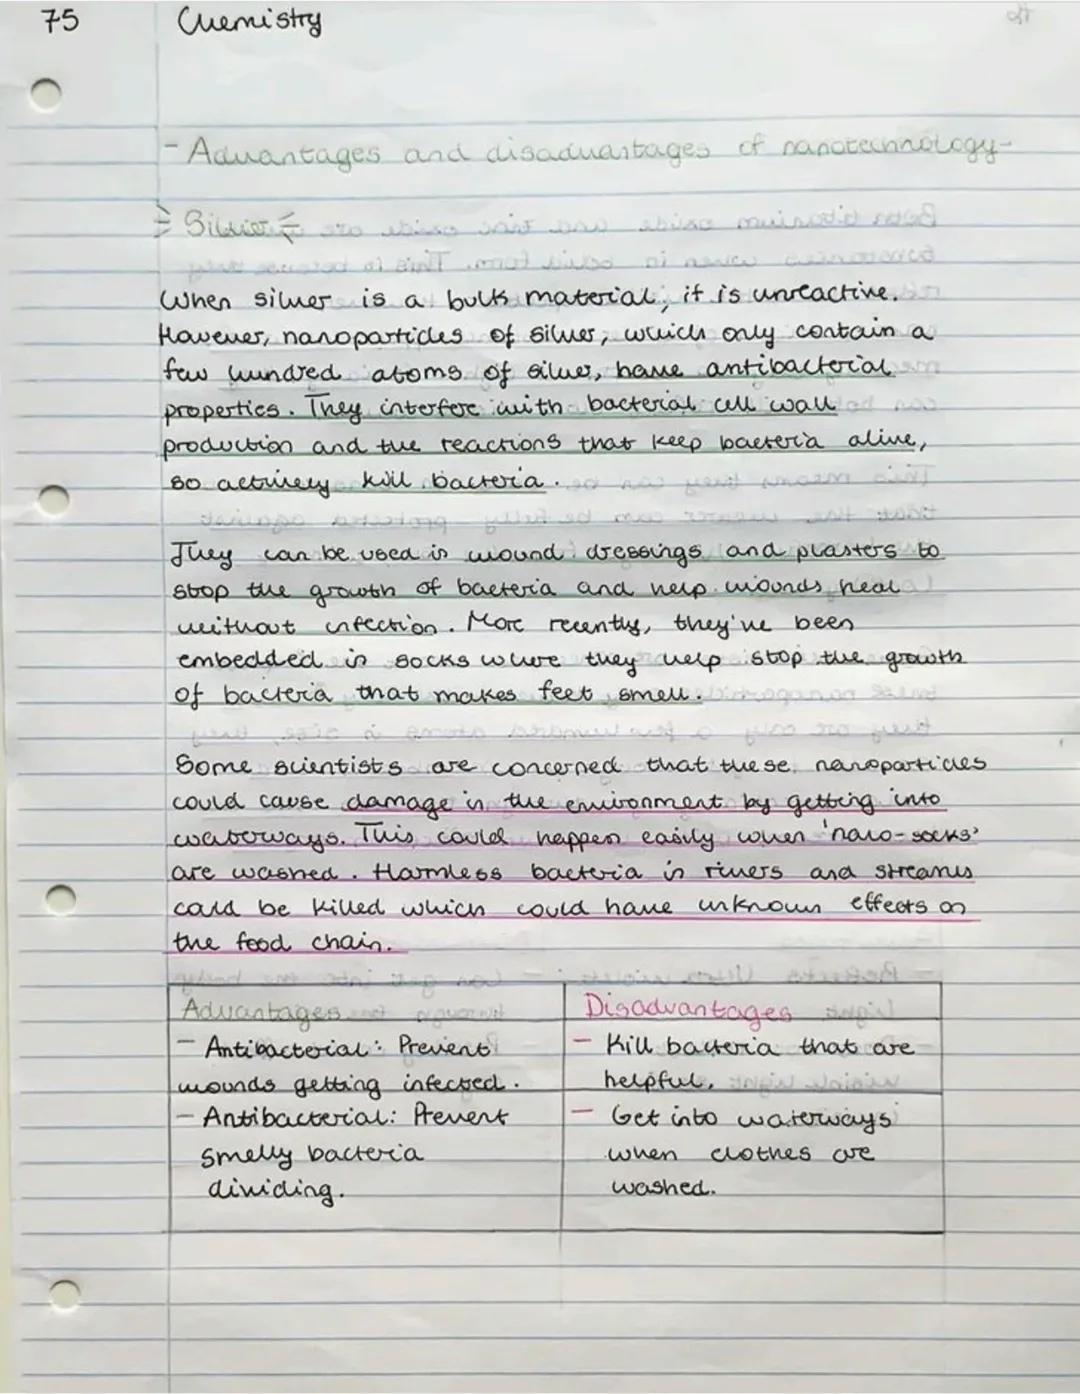 75
Chemistry
- Advantages and disadvantages of nanotechnology -
Silver
When silver is a bulk material, it is unreactive.
However, nanoparticles of silver, which only contain a
few hundred atoms of silver, have antibacterial
properties. They interfere with bacterial cell wall
production and the reactions that keep bacteria alive,
so actively kill bacteria.
They can be used in wound dressings and plasters to
stop the growth of bacteria and help wounds heal
without infection. More recently, they've been
embedded in socks where they help stop the growth
of bacteria that makes feet smell.
Some scientists are concerned that these nanoparticles
could cause damage in the environment by getting into
waterways. This could happen easily when 'nano-socks'
are washed. Harmless bacteria in rivers and streams
could be killed which could have unknown effects on
the food chain.
Advantages
- Antibacterial: Prevent
wounds getting infected.
- Antibacterial: Prevent
smelly bacteria
dividing.
Disadvantages
- Kill bacteria that are
helpful.
- Get into waterways
when clothes are
washed.